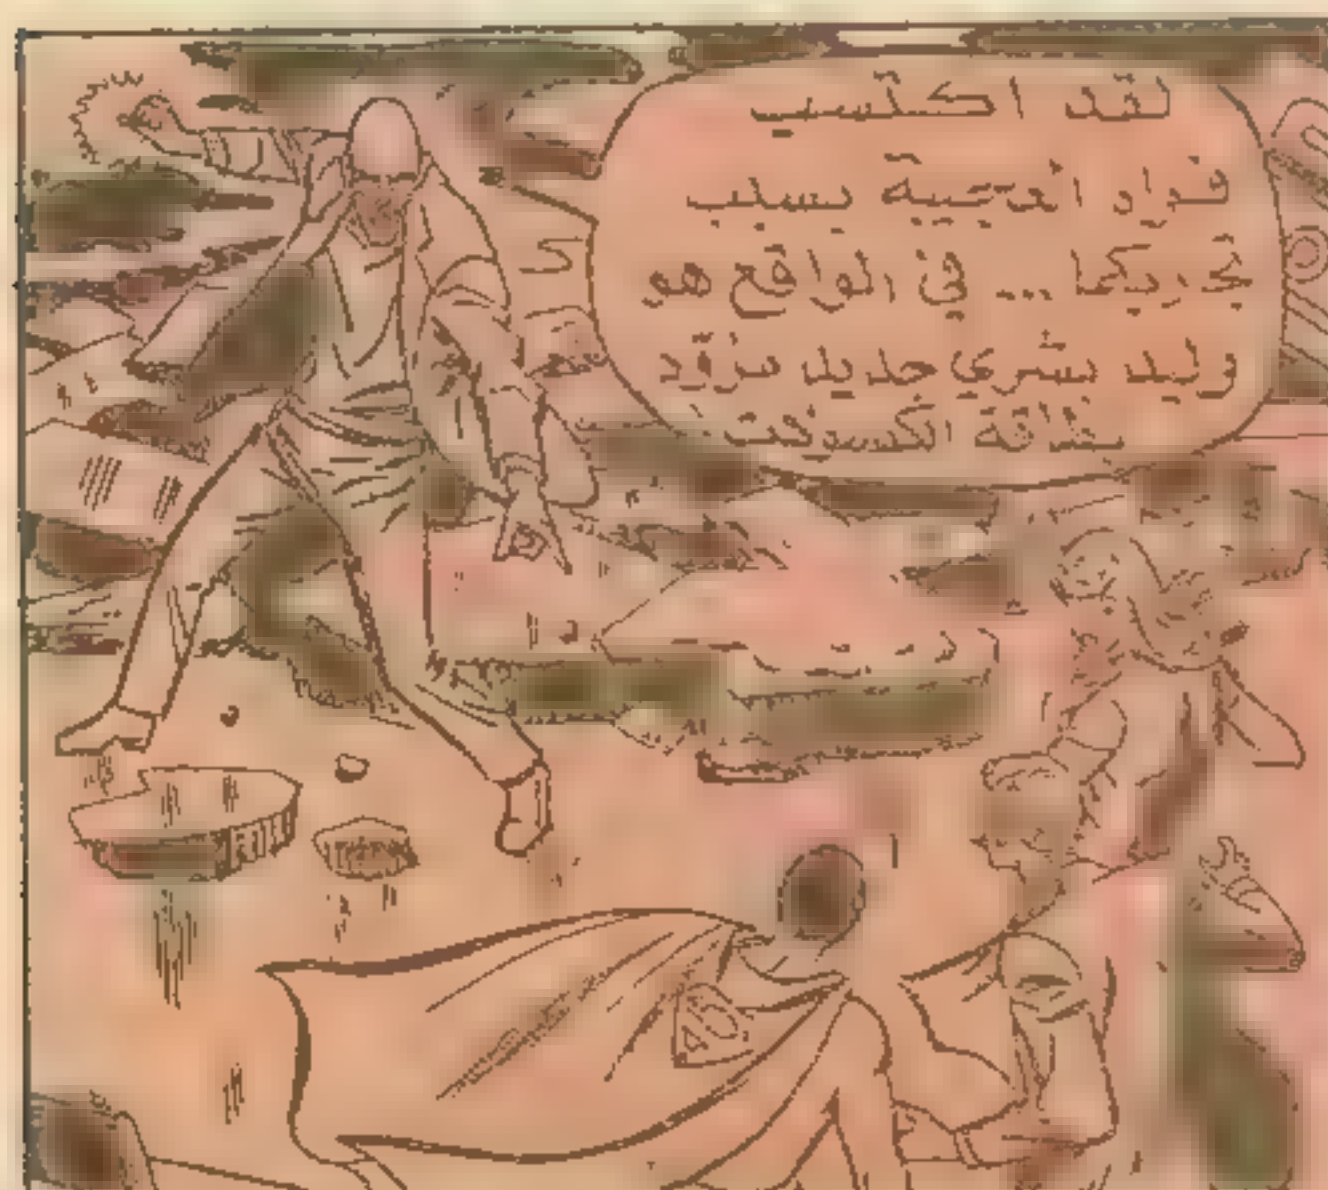 لقد اكتسب
قواه العجيبة بسبب
تجاربكما ... في الواقع هو
وليد بشري جديد مزوّد
بطاقة